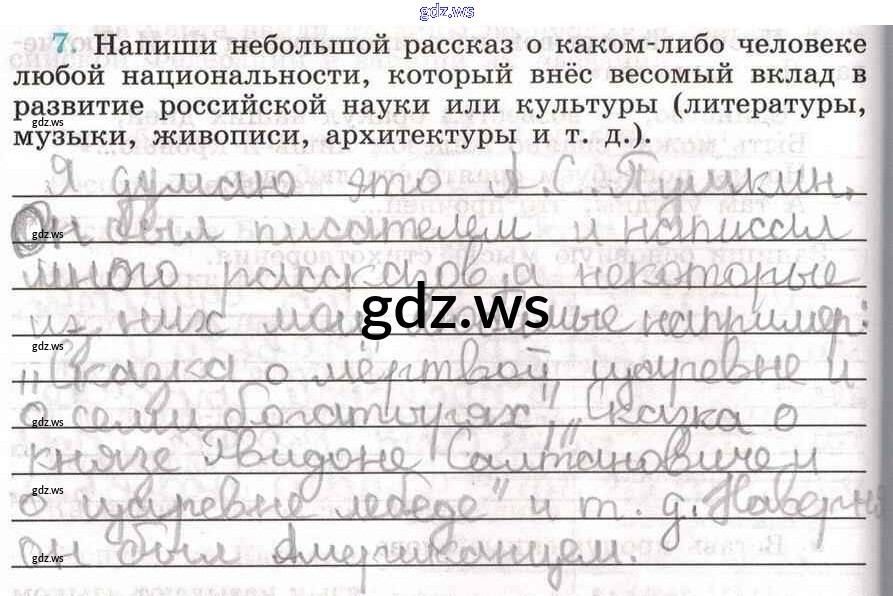 gdz.ws
7. Напиши небольшой рассказ о каком-либо человеке
любой национальности, который внёс весомый вклад в
развитие российской науки или культуры (литературы,
gdz.ws
музыки, живописи, архитектуры и т. д.).
Я думаю это А.С. Пушкин.
Он был писателем и написал
gdz.ws
много рассказов а некоторые
gdz.ws
из них мои например:
gdz.ws
„Сказка о мёртвой царевне и
о семи богатырях", „Сказка о
gdz.ws
князе Гвидоне Салтановиче и
gdz.ws
о царевне лебеде" и т. д. Наверн
он был Американцем.
gdz.ws